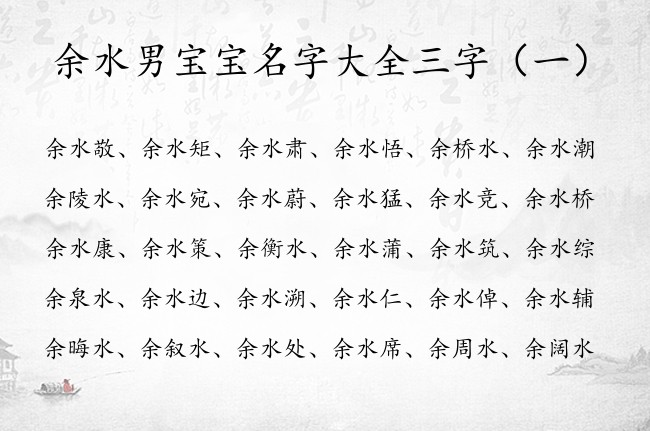 余水男宝宝名字大全三字（一）
余水敬、余水矩、余水肃、余水悟、余桥水、余水潮
余陵水、余水宛、余水蔚、余水猛、余水竞、余水桥
余水康、余水策、余衡水、余水蒲、余水筑、余水综
余泉水、余水边、余水溯、余水仁、余水倬、余水辅
余晦水、余叙水、余水处、余水席、余周水、余阔水